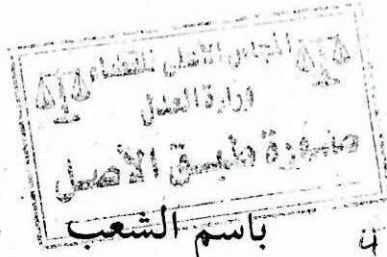 المجلس الأعلى للقضاء
وزارة العدل
صورة طبق الأصل
باسم الشعب